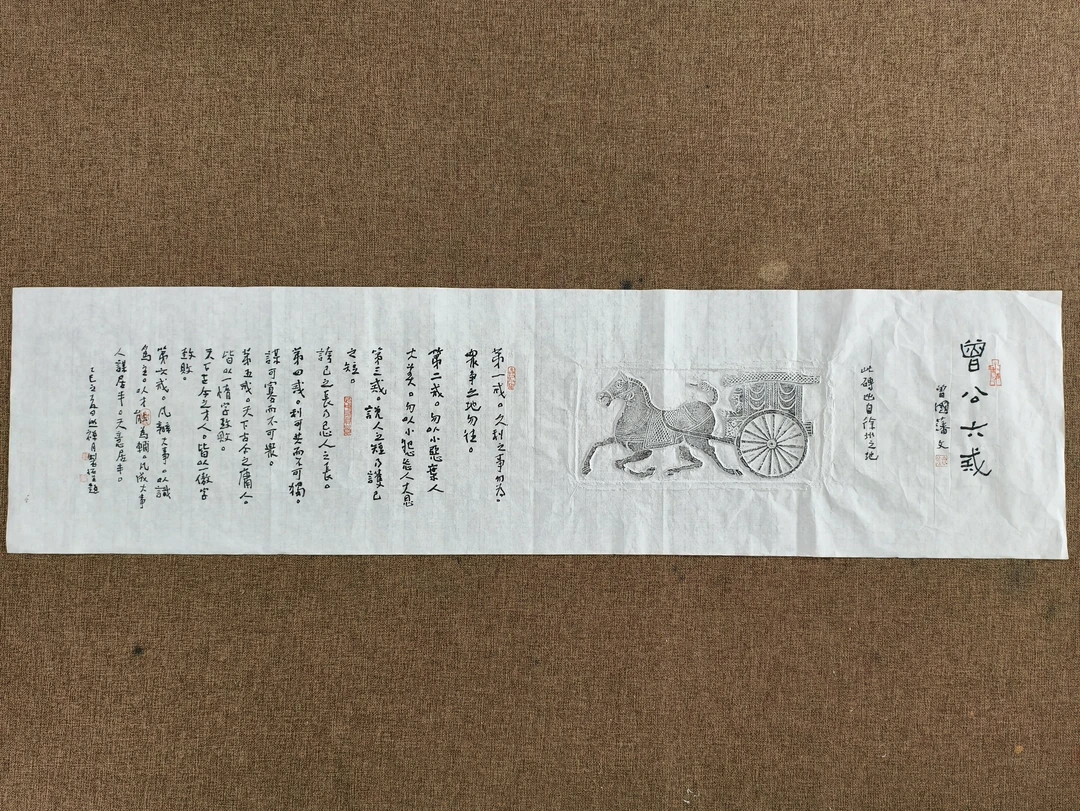 曾公六戒
曾國藩文
此磚出自徐州之地
第一戒。久利之事勿為。
眾爭之地勿往。
第二戒。勿以小惡棄人
大美。勿以小怨忘人大恩
第三戒。說人之短乃護己
之短。
誇己之長乃忌人之長。
第四戒。利可共而不可獨。
謀可寡。而不可眾。
第五戒。天下古今之庸人。
皆以一惰字致敗。
天下古今之才人。皆以一傲字
致敗。
第六戒。凡辦大事。以識
為主。以才能為輔。凡成大事
人謀居半。天意居半。